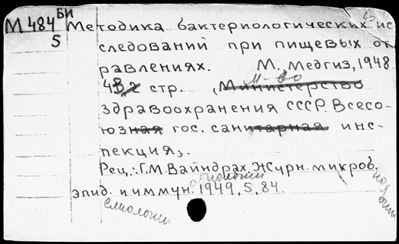 БИ
М 484 Методика бактериологических ис
5 следований при пищевых от
равлениях. М. Медгиз, 1948
стр. , Министерство
м-во
здравоохранения СССР. Всесо-
юзная гос. санитарная инс-
пекция,.
Рец.: Г.М. Вайндрах. Журн. микроб.
эпид. и иммун. 1949, 5, 84.